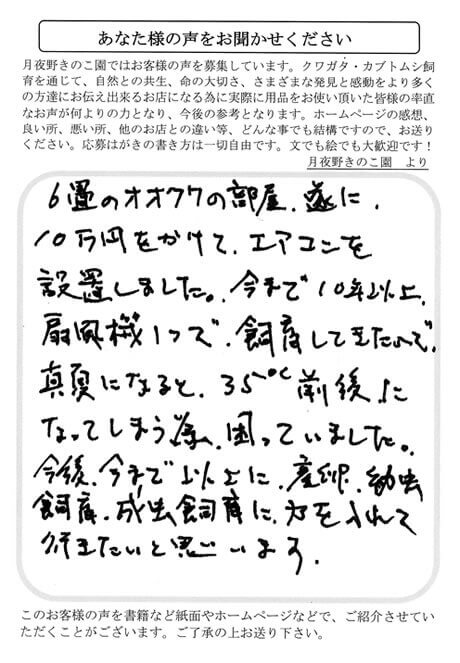 あなた様の声をお聞かせください
月夜野きのこ園ではお客様の声を募集しています。クワガタ・カブトムシ飼
育を通じて、自然との共生、命の大切さ、さまざまな発見と感動をより多く
の方達にお伝え出来るお店になる為に実際に用品をお使い頂いた皆様の率直
なお声が何よりの力となり、今後の参考となります。ホームページの感想、
良い所、悪い所、他のお店との違い等、どんな事でも結構ですので、お送り
ください。応募はがきの書き方は一切自由です。文でも絵でも大歓迎です！
月夜野きのこ園　より
6畳のオオクワの部屋、遂に、
10万円をかけて、エアコンを
設置しました。今まで10年以上、
扇風機1つで、飼育してきたので、
真夏になると、35℃前後に
なってしまう為、困っていました。
今後、今まで以上に、産卵、幼虫
飼育、成虫飼育に、力を入れて
行きたいと思います。
このお客様の声を書籍など紙面やホームページなどで、ご紹介させてい
ただくことがございます。ご了承の上お送り下さい。